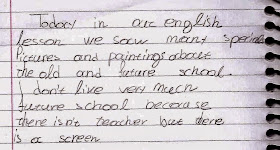 Today in our english
lesson we saw many special
pictures and paintings about
the old and future school.
I don't live very much
future school because
there isn't teacher but there
is a screen